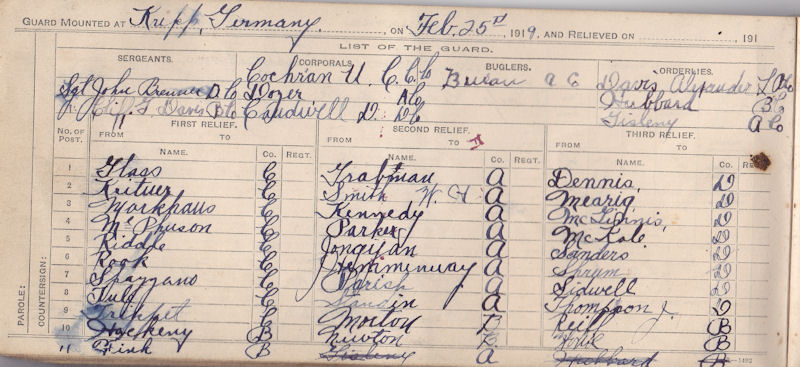 GUARD MOUNTED AT Kripp, Germany. , ON Feb. 25th , 1919, AND RELIEVED ON , 191
LIST OF THE GUARD.
SERGEANTS. CORPORALS. BUGLERS. ORDERLIES.
Sgt John Brenner D. Co Cochran U. C. Co A Co Davis Alexander D Co
Cliff F. Davis B Co Dozer A Co Hubbard B Co
Caudwell D. D Co Tisleny A Co
NO. OF POST. FIRST RELIEF. SECOND RELIEF. THIRD RELIEF.
FROM TO FROM TO FROM TO
NAME. CO. REGT. NAME. CO. REGT. NAME. CO.
1 Glass C Trabman A Dennis, D
2 C Smith W. H. A Mearig D
3 C Kennedy A McGinnis, D
4 C Parker A McKale. D
5 Riddle C A Sanders D
6 Rook C Hemminway A D
7 Spazzano C Parish A Sidwell D
8 C A Thompson J. D
9 C Morton B Reill B
10 Hackeny B Newton B B
11 Fink B Tisleny A Hubbard B
PAROLE:
COUNTERSIGN: